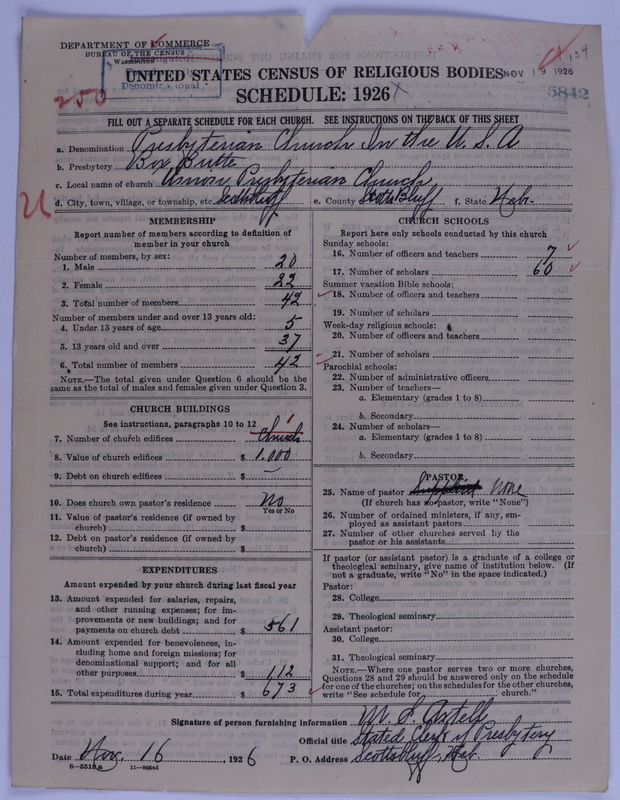 DEPARTMENT OF COMMERCE
BUREAU OF THE CENSUS
WASHINGTON
Denominational
134
NOV 19 1926
UNITED STATES CENSUS OF RELIGIOUS BODIES
5842
250
SCHEDULE: 1926
FILL OUT A SEPARATE SCHEDULE FOR EACH CHURCH. SEE INSTRUCTIONS ON THE BACK OF THIS SHEET
a. Denomination Presbyterian Church In the U. S. A
b. Presbytery Box Butte
c. Local name of church Presbyterian Church
d. City, town, village, or township, etc. Scottsbluff e. County Scotts Bluff f. State Nebr.
MEMBERSHIP
Report number of members according to definition of
member in your church
Number of members, by sex:
1. Male 20
2. Female 22
3. Total number of members 42
Number of members under and over 13 years old:
4. Under 13 years of age 5
5. 13 years old and over 37
6. Total number of members 42
NOTE.—The total given under Question 6 should be the
same as the total of males and females given under Question 3.
CHURCH BUILDINGS
See instructions, paragraphs 10 to 12
7. Number of church edifices 1 Church
8. Value of church edifices $ 1.000
9. Debt on church edifices $ —
10. Does church own pastor's residence No
Yes or No
11. Value of pastor's residence (if owned by
church) $
12. Debt on pastor's residence (if owned by
church) $
EXPENDITURES
Amount expended by your church during last fiscal year
13. Amount expended for salaries, repairs,
and other running expenses; for im-
provements or new buildings; and for
payments on church debt $ 561
14. Amount expended for benevolences, in-
cluding home and foreign missions; for
denominational support; and for all
other purposes $ 112
15. Total expenditures during year $ 673
CHURCH SCHOOLS
Report here only schools conducted by this church
Sunday schools:
16. Number of officers and teachers 7
17. Number of scholars 60
Summer vacation Bible schools:
18. Number of officers and teachers
19. Number of scholars
Week-day religious schools:
20. Number of officers and teachers
21. Number of scholars
Parochial schools:
22. Number of administrative officers
23. Number of teachers—
a. Elementary (grades 1 to 8)
b. Secondary
24. Number of scholars—
a. Elementary (grades 1 to 8)
b. Secondary
PASTOR
25. Name of pastor Supplied None
(If church has no pastor, write "None")
26. Number of ordained ministers, if any, em-
ployed as assistant pastors
27. Number of other churches served by the
pastor or his assistants
If pastor (or assistant pastor) is a graduate of a college or
theological seminary, give name of institution below. (If
not a graduate, write "No" in the space indicated.)
Pastor:
28. College
29. Theological seminary
Assistant pastor:
30. College
31. Theological seminary
NOTE.—Where one pastor serves two or more churches,
Questions 28 and 29 should be answered only on the schedule
for one of the churches; on the schedules for the other churches,
write "See schedule for church."
Signature of person furnishing information W. S. Axtell
Official title Stated Clerk of Presbytery
Date Nov. 16, 1926 P. O. Address Scottsbluff, Neb.
8—5518 a 11—9054d